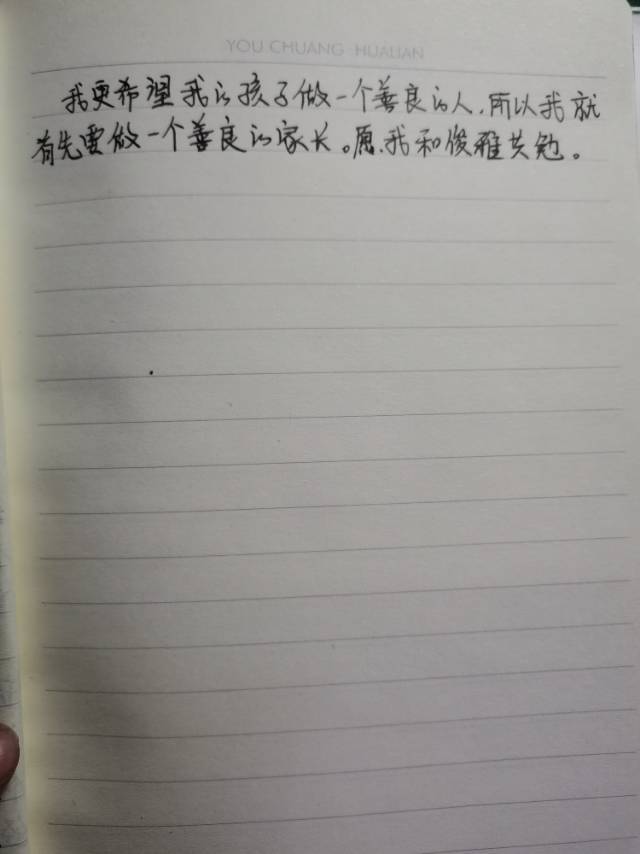 YOU CHUANG HUALIAN
我更希望我的孩子做一个善良的人,所以我就
首先要做一个善良的家长。愿我和俊雅共勉。